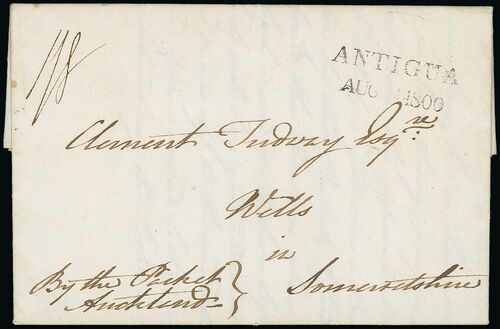 1/8
ANTIGUA
AUG 1 1800
Clement Tudway Esqre
Wells
in
Somersetshire
By the Packet
Auckland